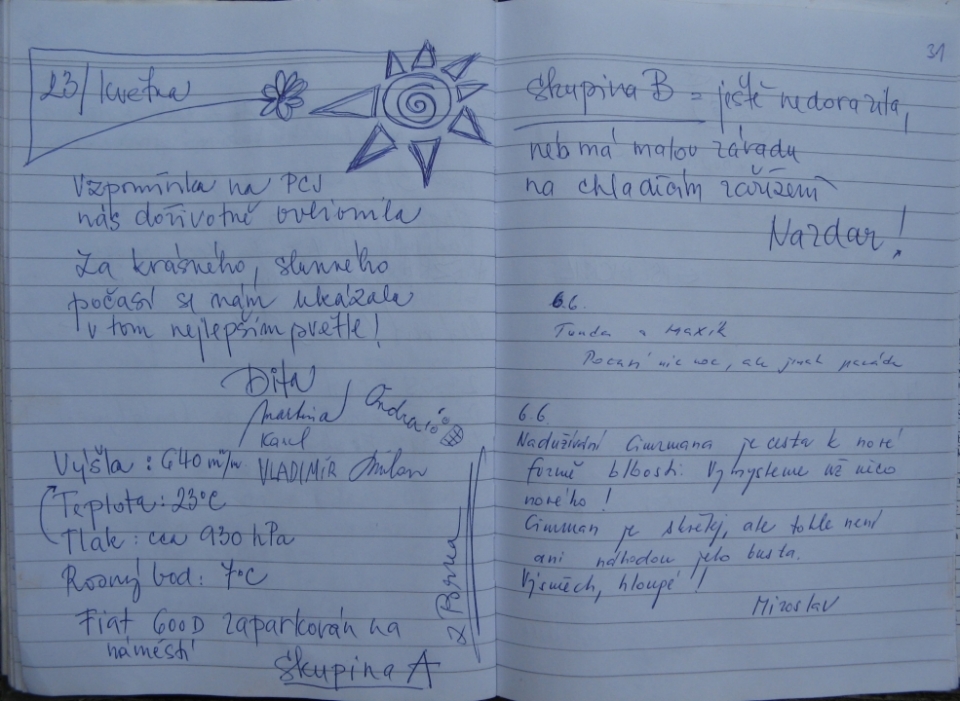 23/ května
Vzpomínka na PCJ
nás doživotně ovlivnila
Za krásného, slunného
počasí se nám ukázala
v tom nejlepším světle!
Dita
Martina
Karel
Ondra
Výšla: 640 m/m VLADIMÍR Milan
Teplota: 23°C
Tlak: cca 930 hPa
Rosný bod: 7°C
Fiat 600D zaparkován na
náměstí
Skupina A
z Brna
31
Skupina B = ještě nedorazila,
neb má malou závadu
na chladícím zařízení
Nazdar!
6.6.
Tunda a Maxík
Pocasí nic moc, ale jinak paráda
6.6.
Nadužívání Cimrmana je cesta k nové
formě blbosti. Vymysleme už něco
nového!
Cimrman je skvělej, ale tohle není
ani náhodou jeho busta.
Výsměch, hloupé!!
Miroslav